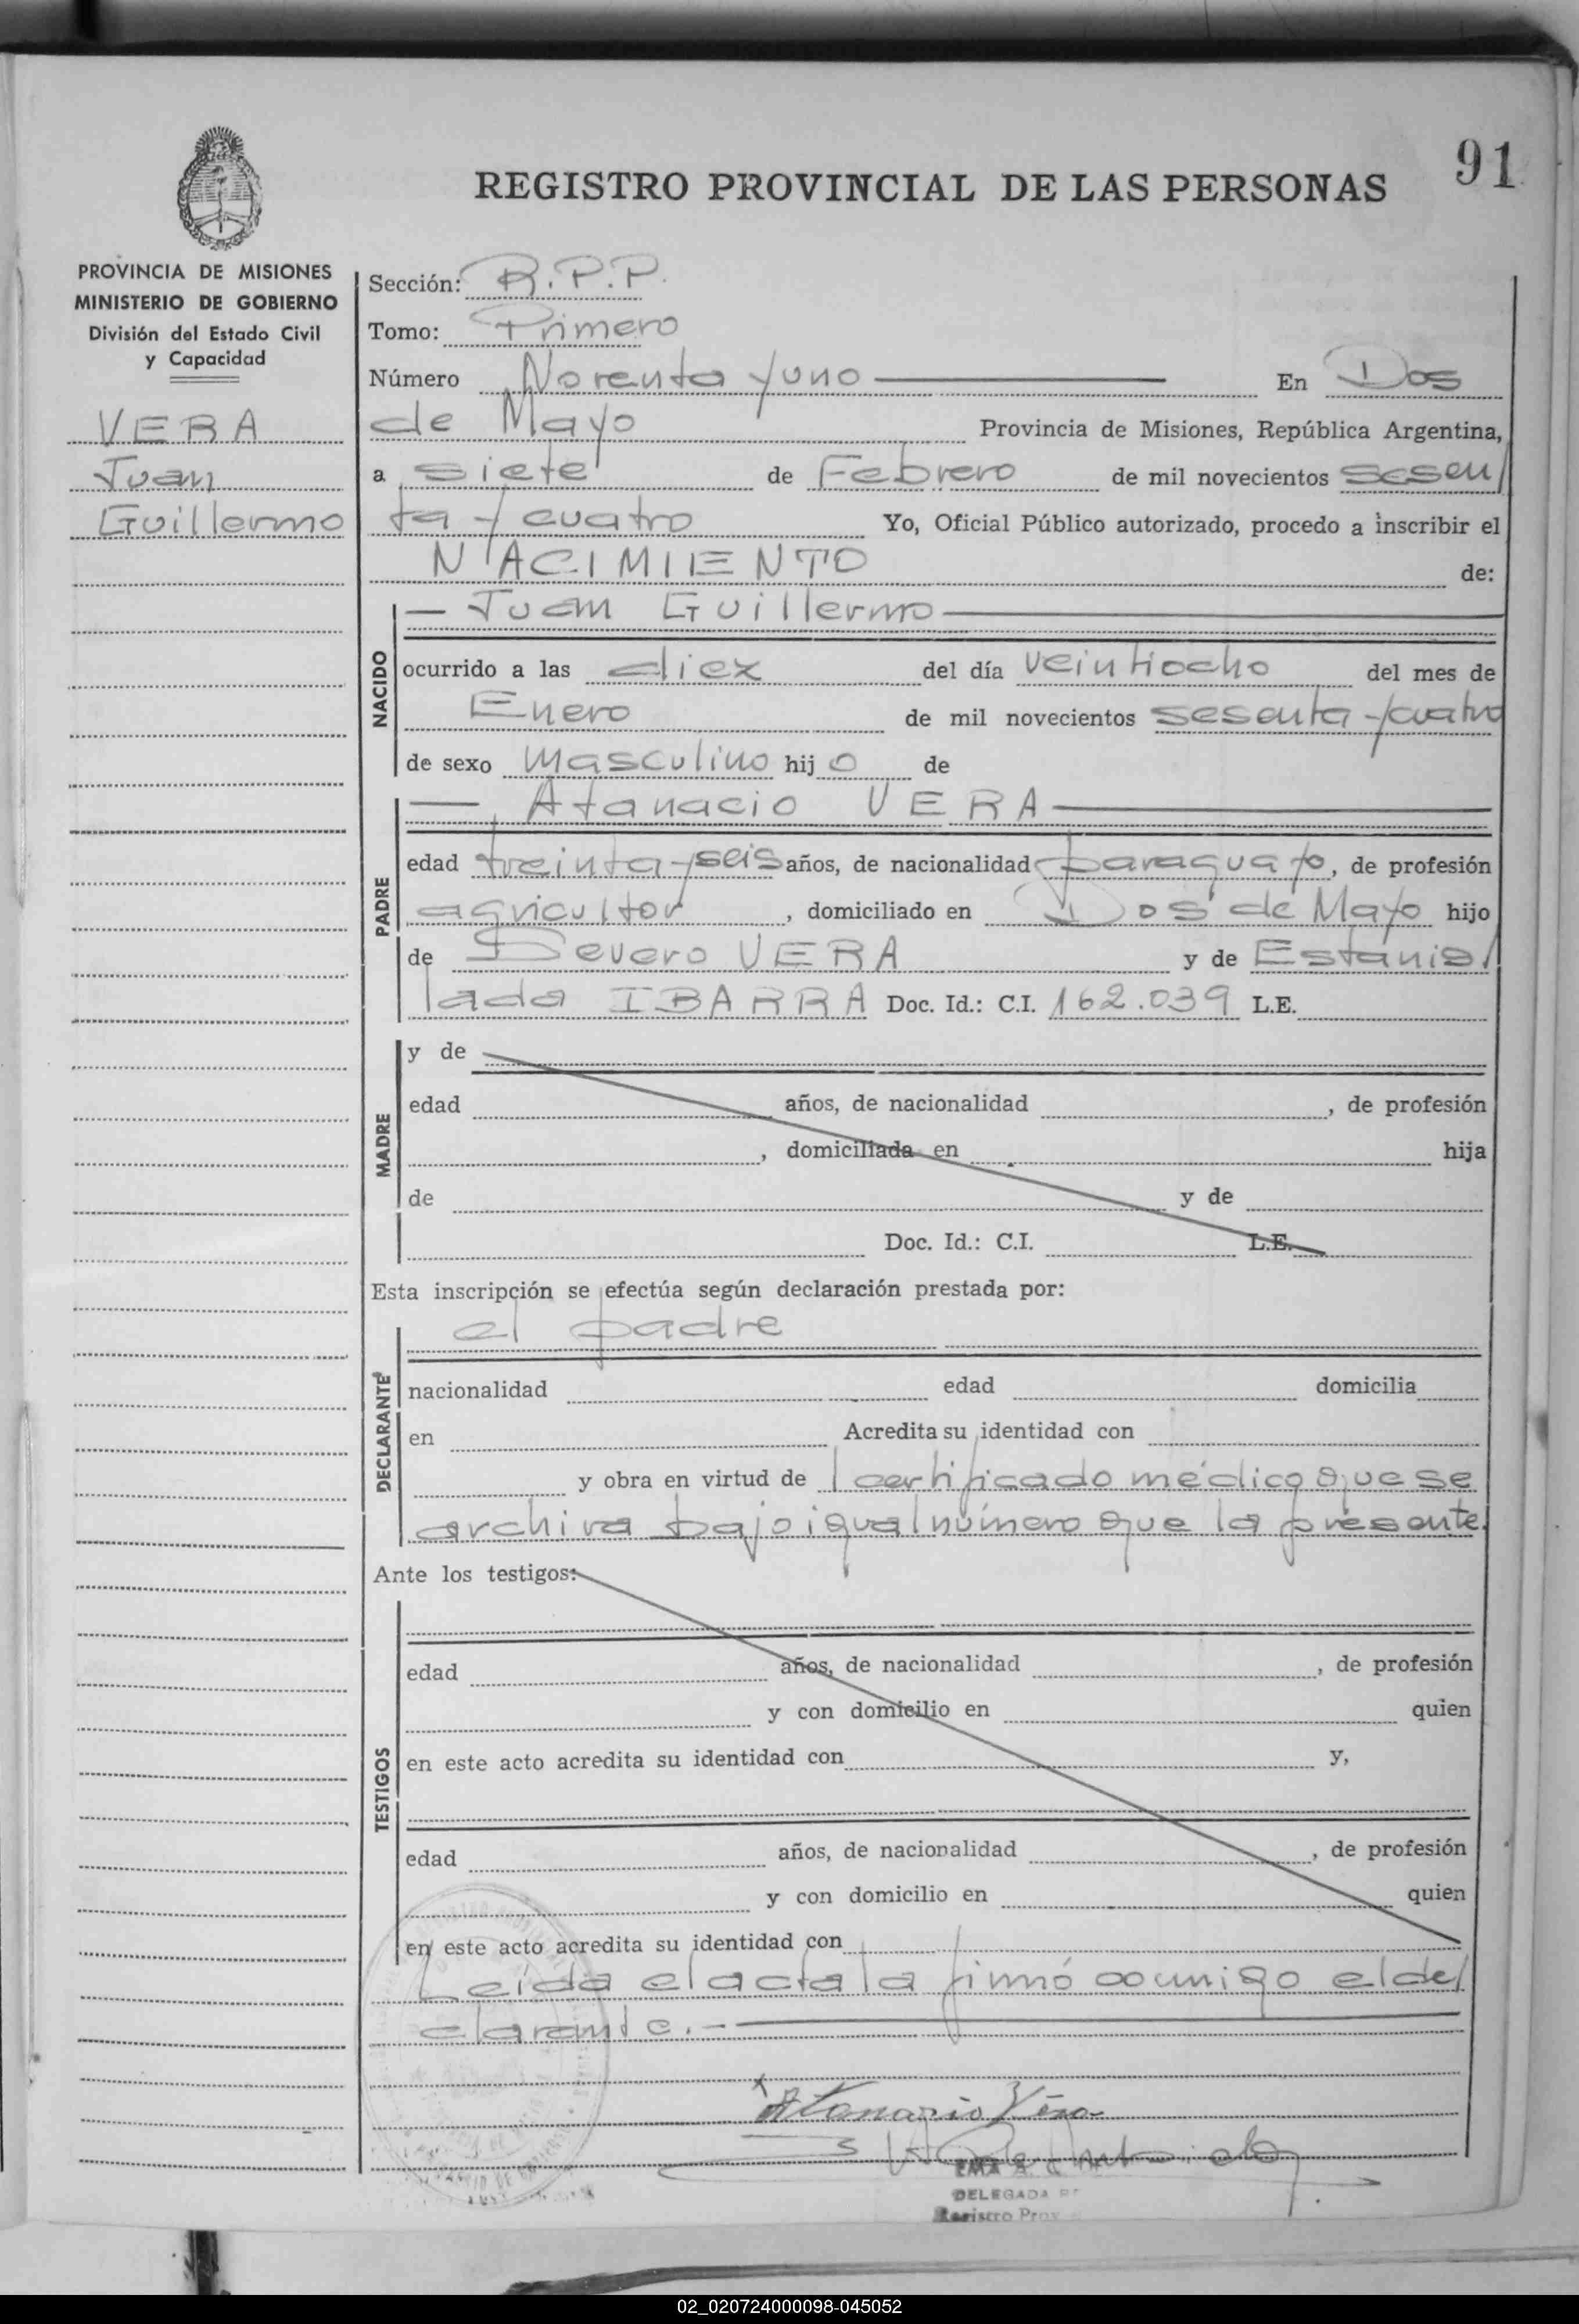 91
REGISTRO PROVINCIAL DE LAS PERSONAS
PROVINCIA DE MISIONES
MINISTERIO DE GOBIERNO
División del Estado Civil
y Capacidad
VERA
Juan
Guillermo
Sección: R.P.P.
Tomo: Primero
Número Noventa y uno En Dos
de Mayo Provincia de Misiones, República Argentina,
a siete de Febrero de mil novecientos sesen/
ta y cuatro Yo, Oficial Público autorizado, procedo a inscribir el
NACIMIENTO de:
NACIDO
— Juan Guillermo —
ocurrido a las diez del día veintiocho del mes de
Enero de mil novecientos sesenta y cuatro
de sexo Masculino hijo de
PADRE
— Atanacio VERA —
edad treinta y seis años, de nacionalidad paraguayo, de profesión
agricultor, domiciliado en Dos de Mayo hijo
de Severo VERA y de Estanis/
lada IBARRA Doc. Id.: C.I. 162.039 L.E.
MADRE
y de
edad años, de nacionalidad , de profesión
, domiciliada en hija
de y de
Doc. Id.: C.I. L.E.
Esta inscripción se efectúa según declaración prestada por:
DECLARANTE
el padre
nacionalidad edad domicilia
en Acredita su identidad con
y obra en virtud de l certificado médico que se
archiva bajo igual número que la presente.
Ante los testigos:
TESTIGOS
edad años, de nacionalidad , de profesión
y con domicilio en quien
en este acto acredita su identidad con y,
edad años, de nacionalidad , de profesión
y con domicilio en quien
en este acto acredita su identidad con
Leída el acta la firmó conmigo el de/
clarante.-
Atanacio Vera
EMA
DELEGADA
Registro Prov
02_020724000098-045052